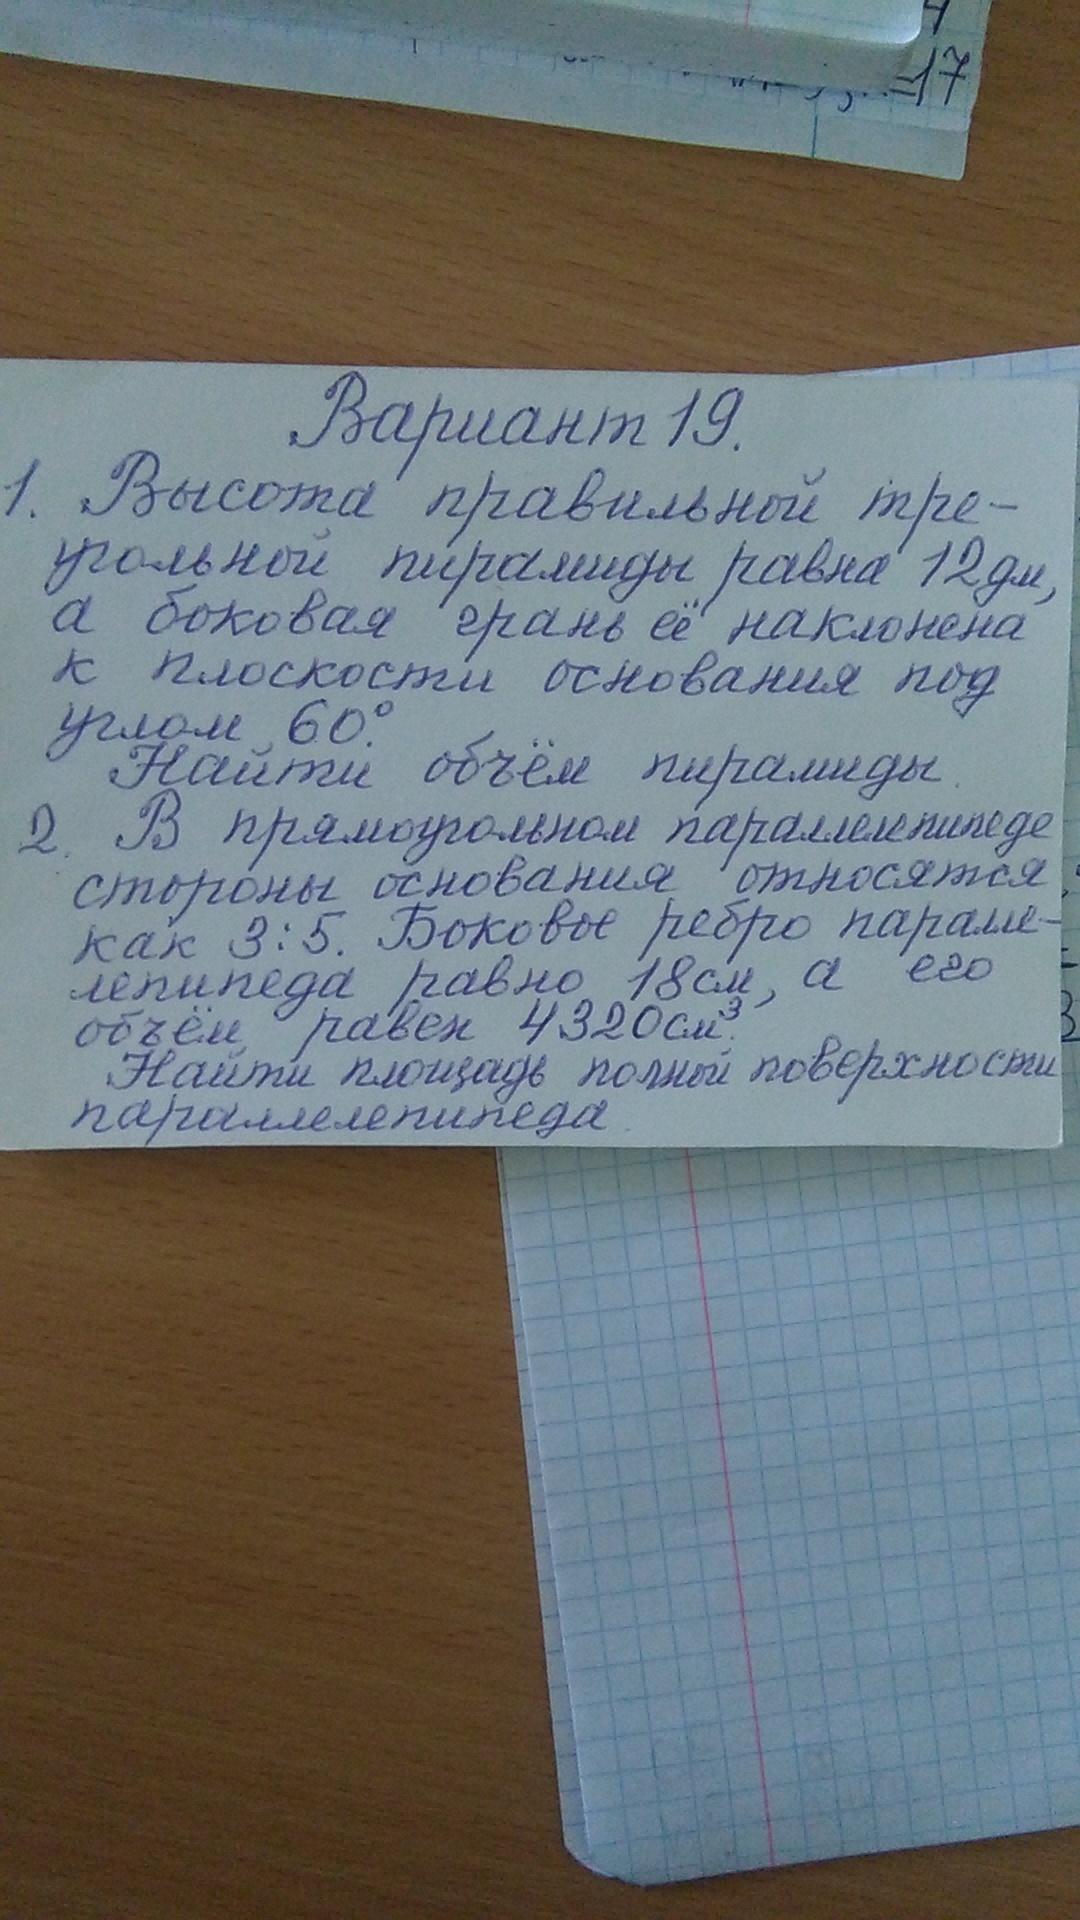 =17
Вариант 19.
1. Высота правильной тре-
угольной пирамиды равна 12дм,
а боковая грань её наклонена
к плоскости основания под
углом 60°.
Найти объём пирамиды.
2. В прямоугольном параллелепипеде
стороны основания относятся
как 3:5. Боковое ребро паралле-
лепипеда равно 18см, а его
объём равен 4320см³.
Найти площадь полной поверхности
параллелепипеда.